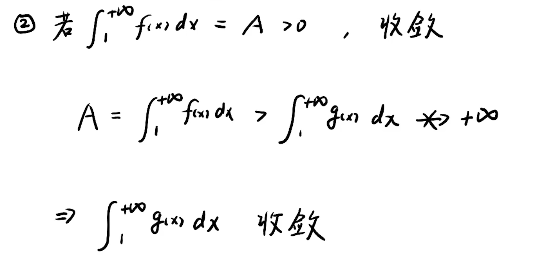 ② 若 ∫₁^{+∞} f(x) dx = A > 0 , 收敛
A = ∫₁^{+∞} f(x) dx > ∫₁^{+∞} g(x) dx ↛ +∞
⇒ ∫₁^{+∞} g(x) dx 收敛